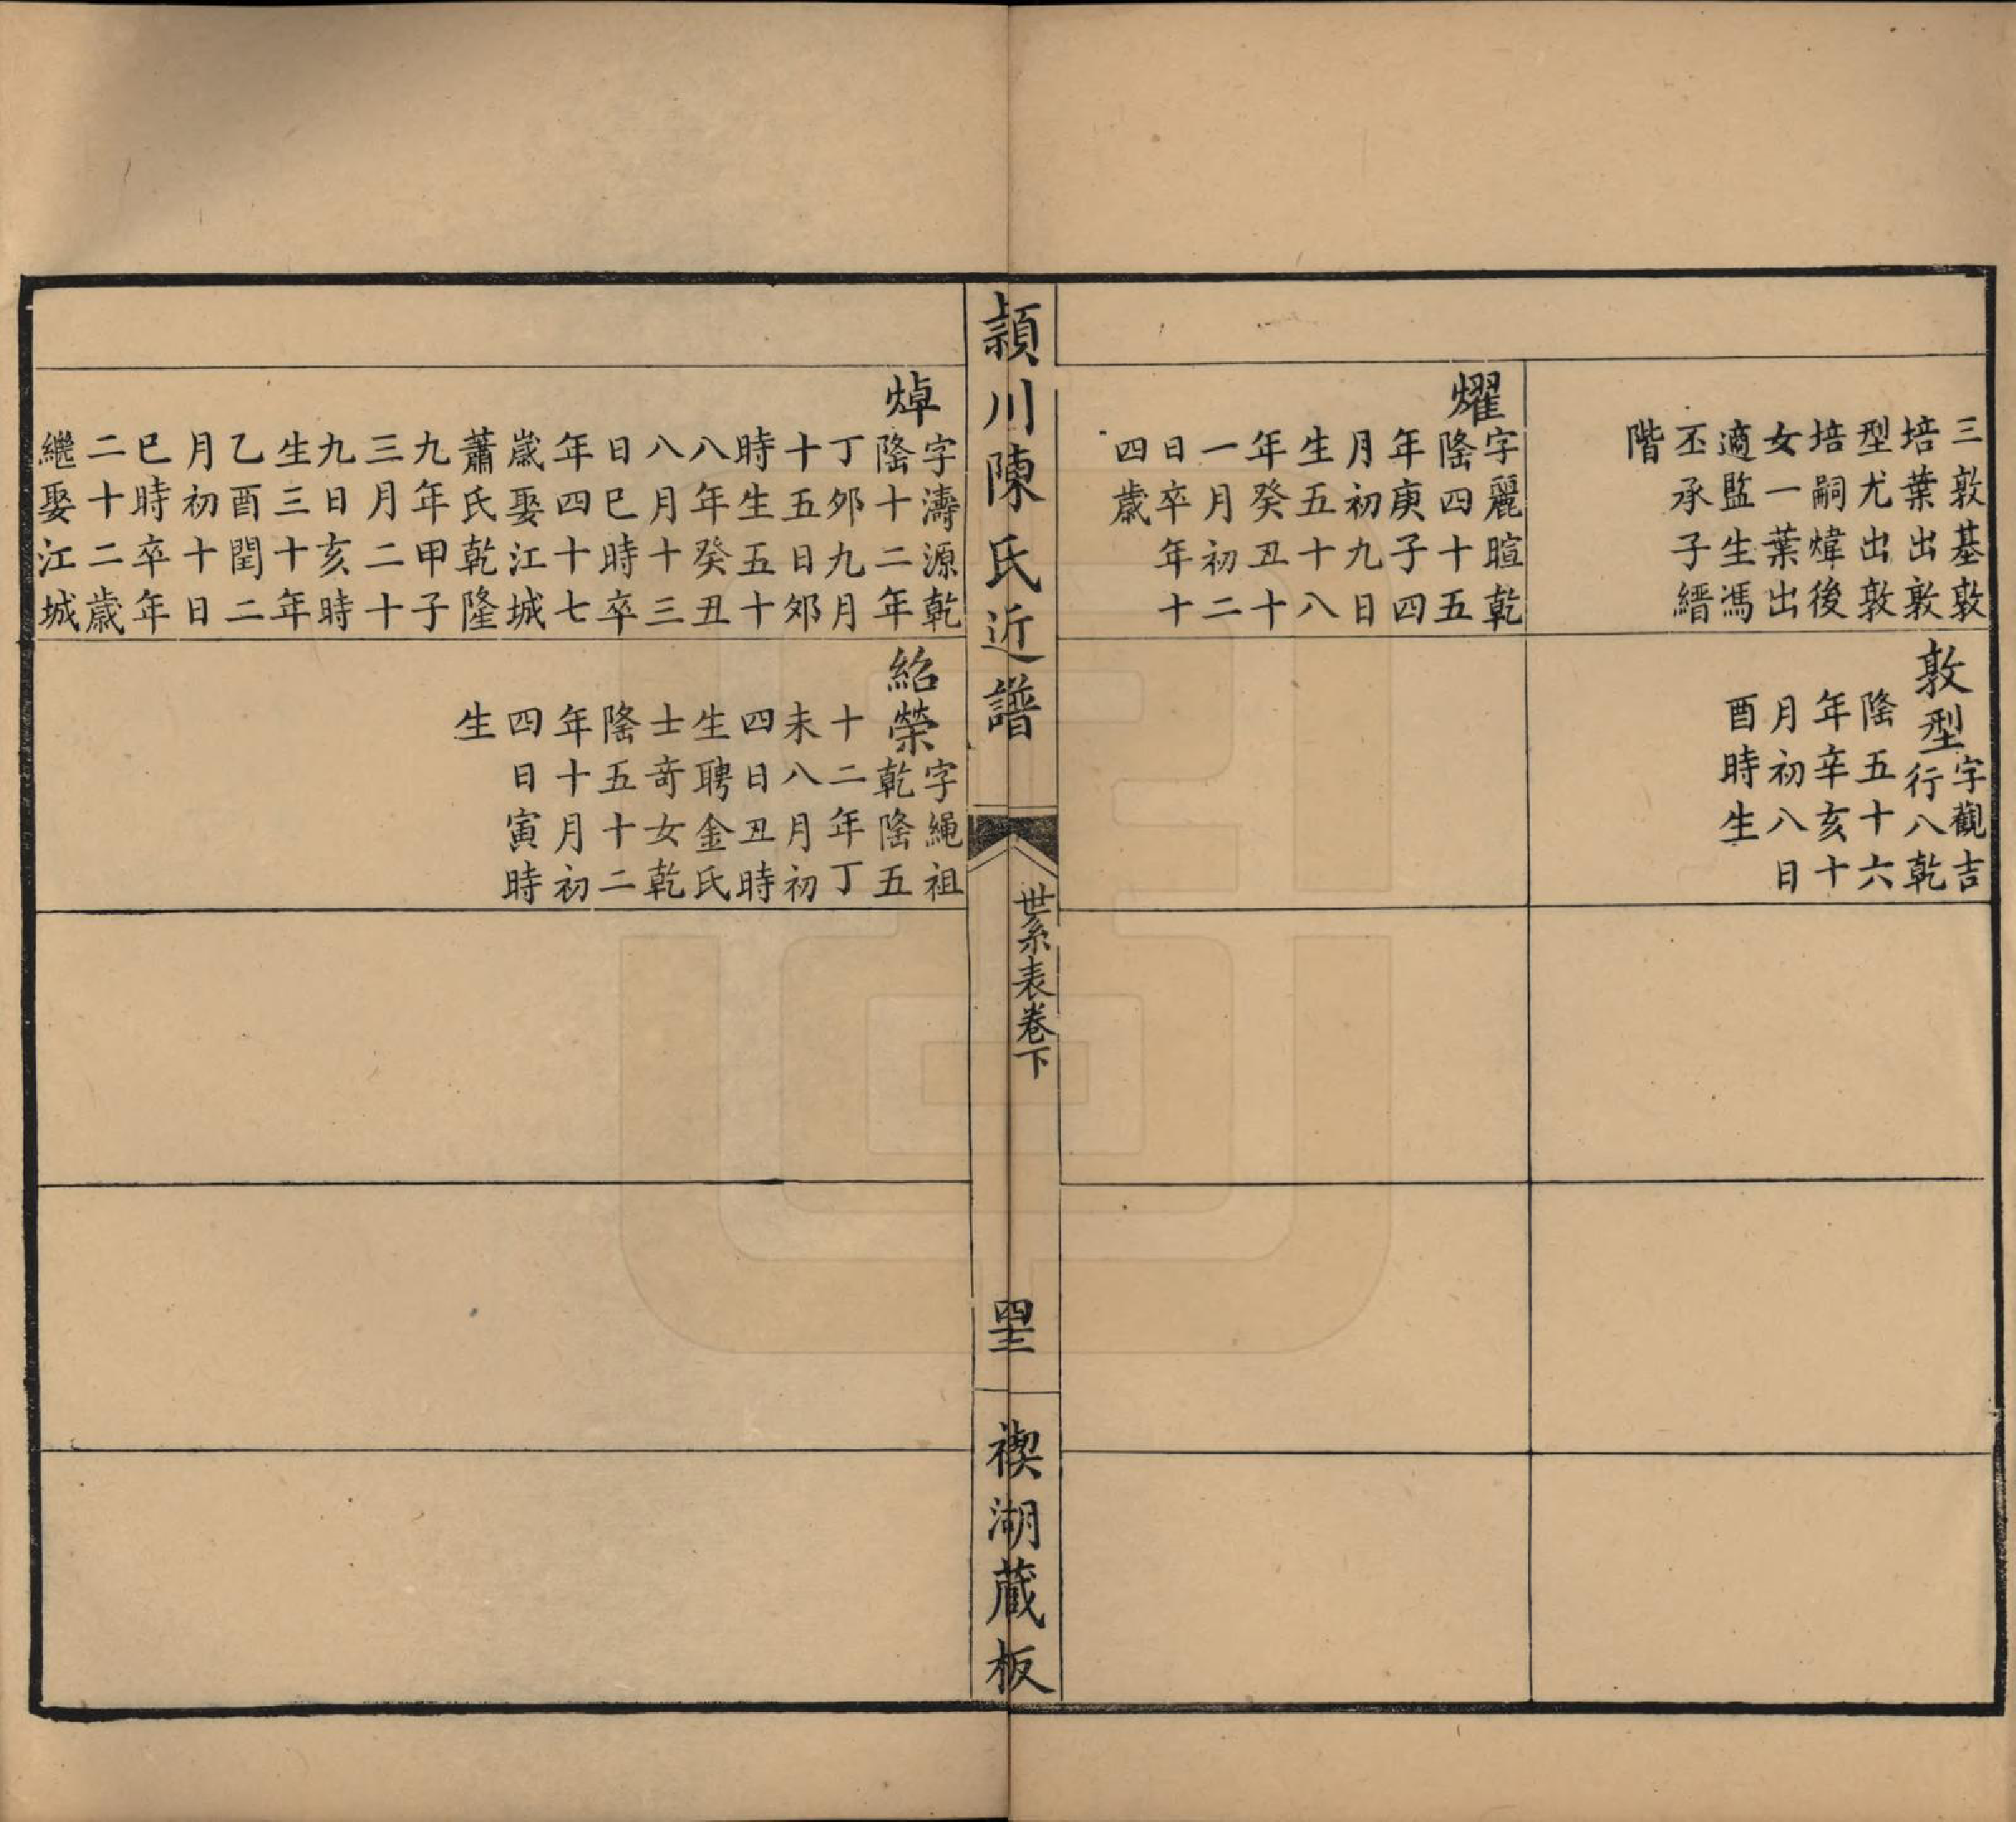 三敦基敦
培葉出敦
型尤出敦
培嗣煒後
女一葉出
適監生馮
丕承子縉
階
敦型
字觀吉
行八乾
隆五十六
年辛亥十
月初八日
酉時生
燿
字麗暄乾
隆四十五
年庚子四
月初九日
生五十八
年癸丑十
一月初二
日卒年十
四歲
潁川陳氏近譜
世系表卷下
四十三
禊湖藏板
焯
字濤源乾
隆十二年
丁夘九月
十五日夘
時生五十
八年癸丑
八月十三
日巳時卒
年四十七
歲娶江城
蕭氏乾隆
九年甲子
三月二十
九日亥時
生三十年
乙酉閏二
月初十日
巳時卒年
二十二歲
繼娶江城
紹榮
字繩祖
乾隆五
十二年丁
未八月初
四日丑時
生聘金氏
士竒女乾
隆五十二
年十月初
四日寅時
生